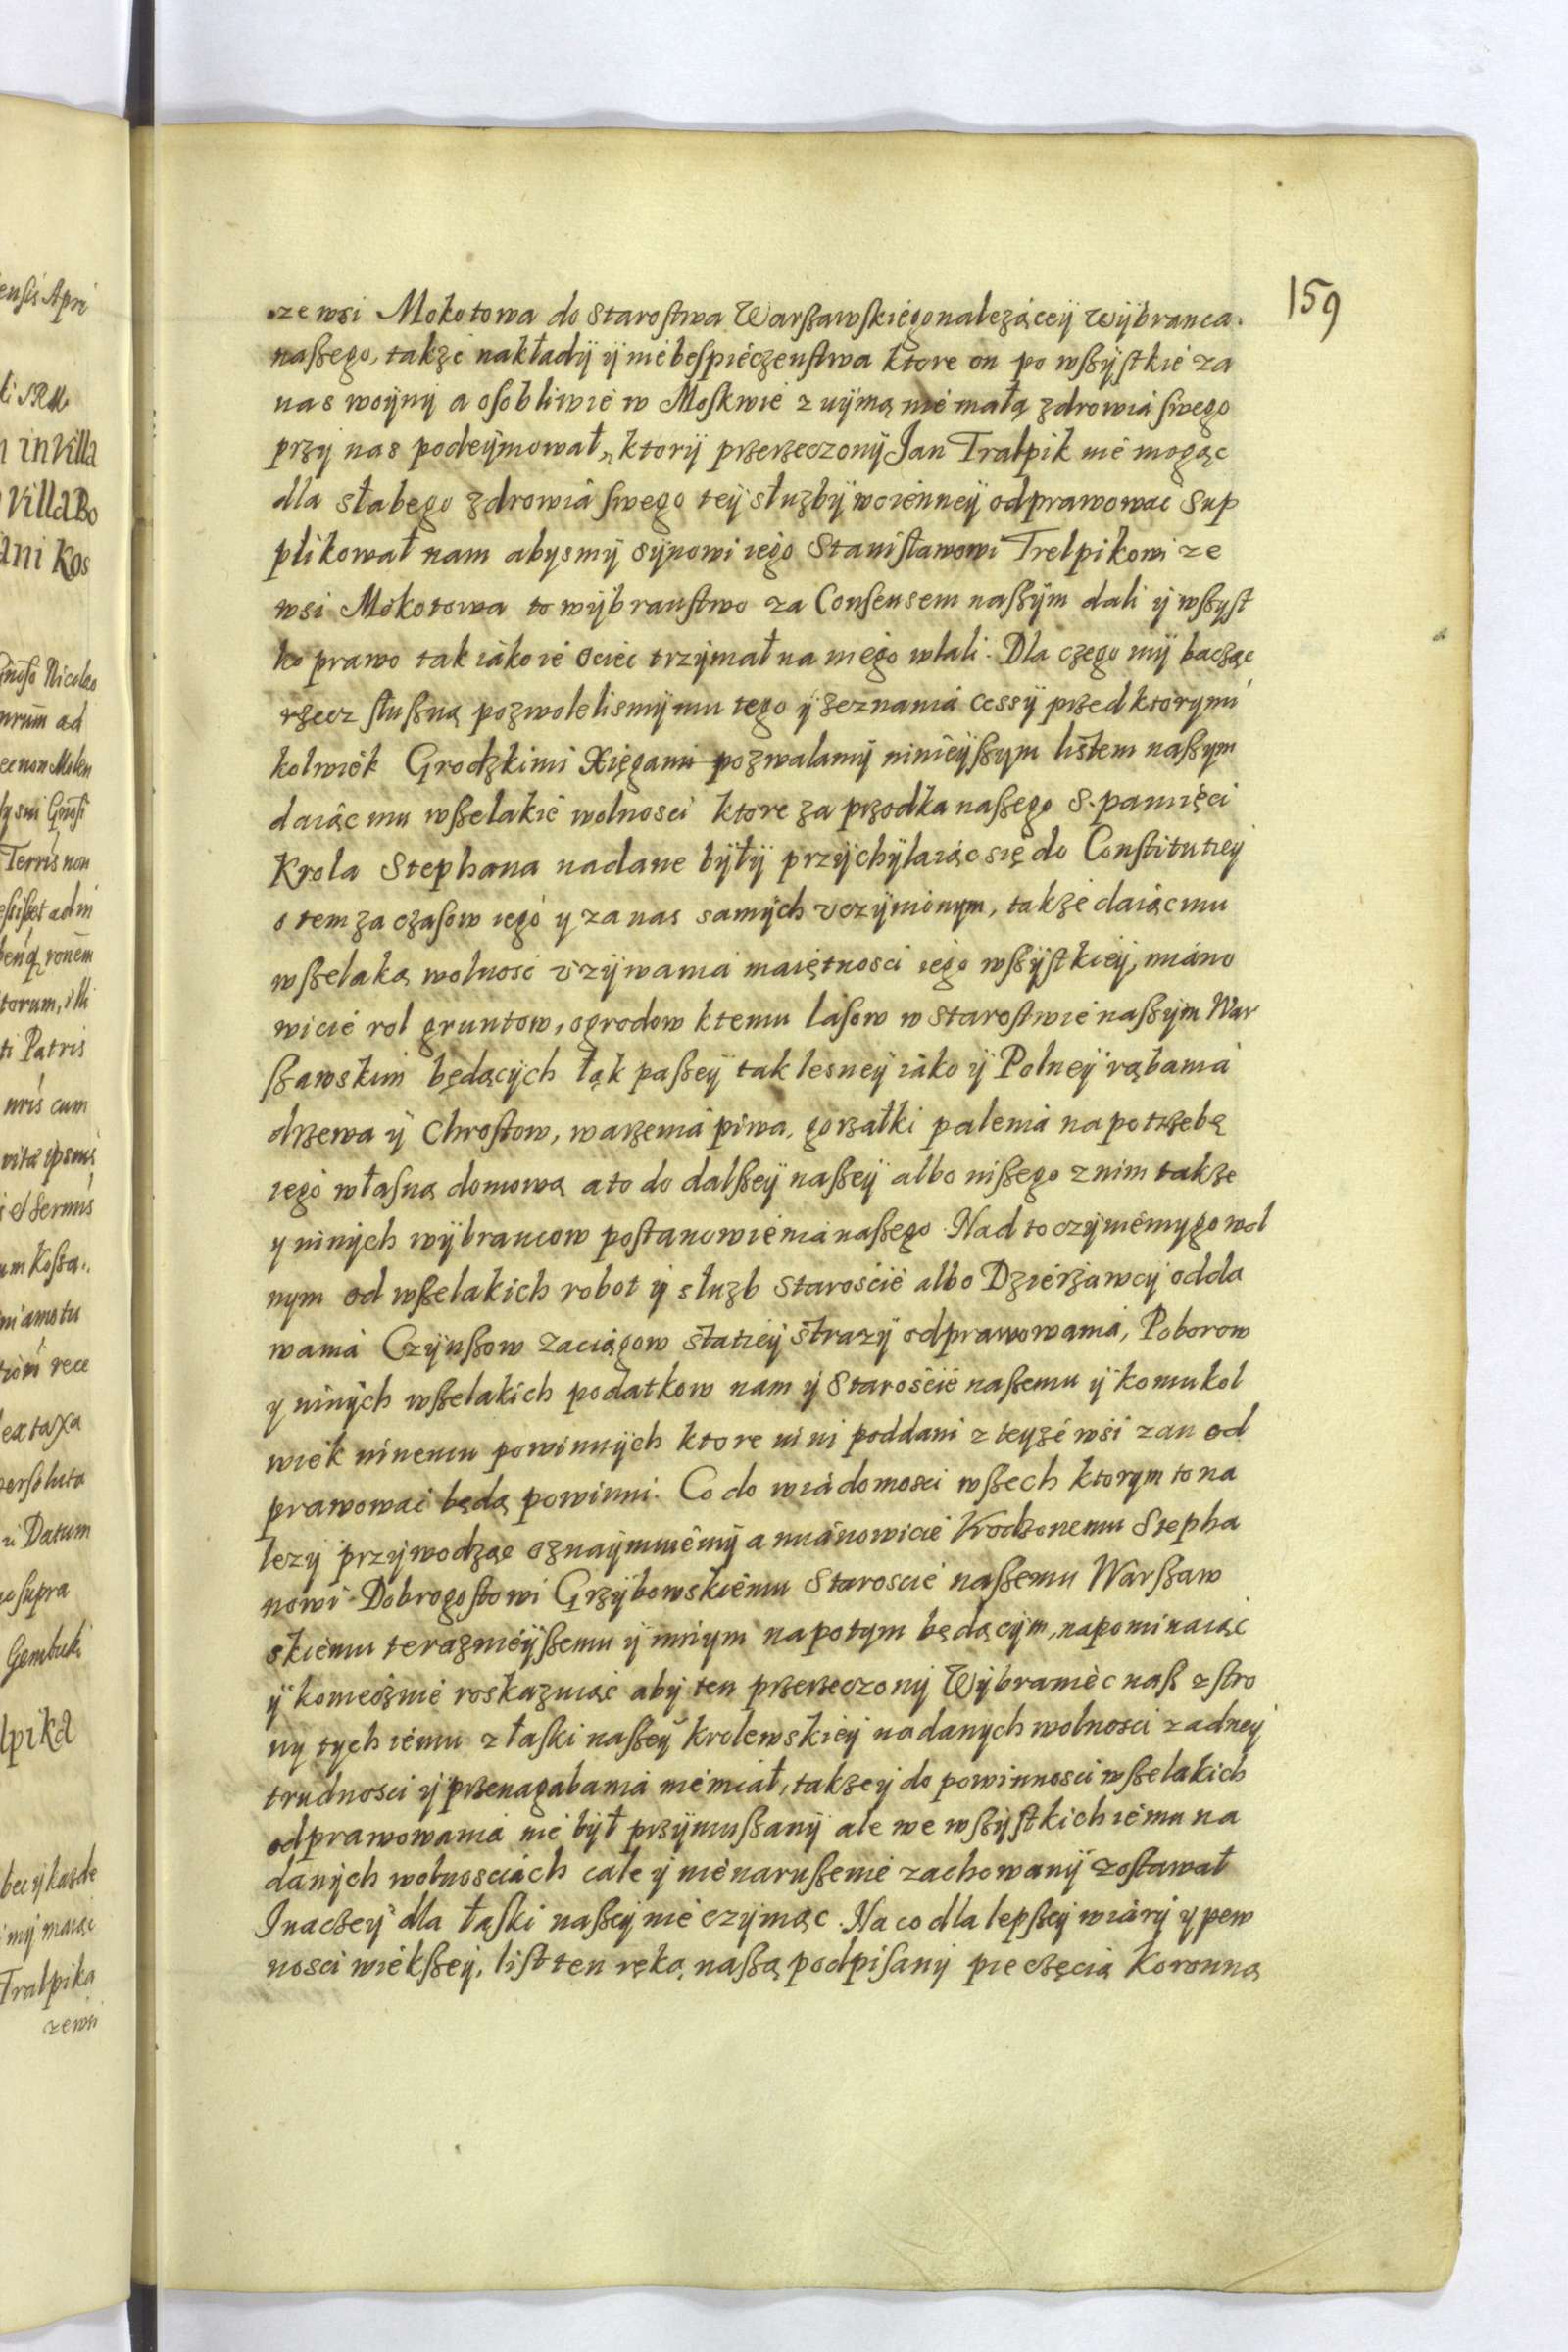 159
ze wsi Mokotowa do Starostwa Warszawskiego nalezącey Wybranca
naszego, takze nakłady y niebespieczenstwa ktore on po wszystkie za
nas woyny a osobliwie w Moskwie z uymą nie małą zdrowia swego
przy nas podeymował, ktory przerzeczony Jan Tralpik nie mogąc
dla słabego zdrowia swego tey słuzby woienney odprawowac Sup
plikował nam abysmy synowi iego Stanisławowi Trelpikowi ze
wsi Mokotowa to wybranstwo za Consensem naszym dali y wszyst
ko prawo tak iako ie ociec trzymał na niego wlali. Dla czego my bacząc
rzecz słuszną pozwolelismy mu tego y zeznania cessy przed ktorymi
kolwiek Grodzkimi Xięgami pozwalamy ninieyszym listem naszym
daiąc mu wszelakie wolnosci ktore za przodka naszego S. pamięci
Krola Stephana nadane były przychylaiąc się do Constitutiey
o tem za czasow iego y za nas samych uczynionym, takze daiąc mu
wszelaką wolnosc uzywania maiętnosci iego wszystkiey, miano
wicie rol gruntow, ogrodow ktemu lasow w Starostwie naszym War
szawskim będących łąk paszey tak lesney iako y Polney rąbania
drzewa y Chrostow, warzenia piwa, gorzałki palenia na potrzebę
iego własną domową a to do dalszey naszey albo niszego z nim takze
y ninych wybrancow postanowienia naszego. Nad to czyniemy go wol
nym od wszelakich robot y słuzb Staroscie albo Dzierzawcy odda
wania Czynszow zaciągow statiey strazy odprawowania, Poborow
y ninych wszelakich podatkow nam y Staroscie naszemu y komukol
wiek ninemu powinnych ktore nini poddani z teyze wsi zan od
prawowac będą powinni. Co do wiadomosci wszech ktorym to na
lezy przywodząc oznaymuiemy a mianowicie Vrodzonemu Stepha
nowi Dobrogostowi Grzybowskiemu Staroscie naszemu Warszaw
skiemu teraznieyszemu y innym napotym będącym, napominaiąc
y koniecznie roskazuiąc aby ten przerzeczony Wybraniec nasz z stro
ny tych iemu z łaski naszey krolewskiey nadanych wolnosci zadney
trudnosci y przenagabania niemiał, takze y do powinnosci wszelakich
odprawowania nie był przymuszany ale we wszystkich iemu na
danych wolnosciach cale y nienaruszenie zachowany zostawał
Inaczey dla łaski naszey nie czyniąc. Na co dla lepszey wiary y pew
nosci wiekszey, list ten ręką naszą podpisany pieczęcią Koronną